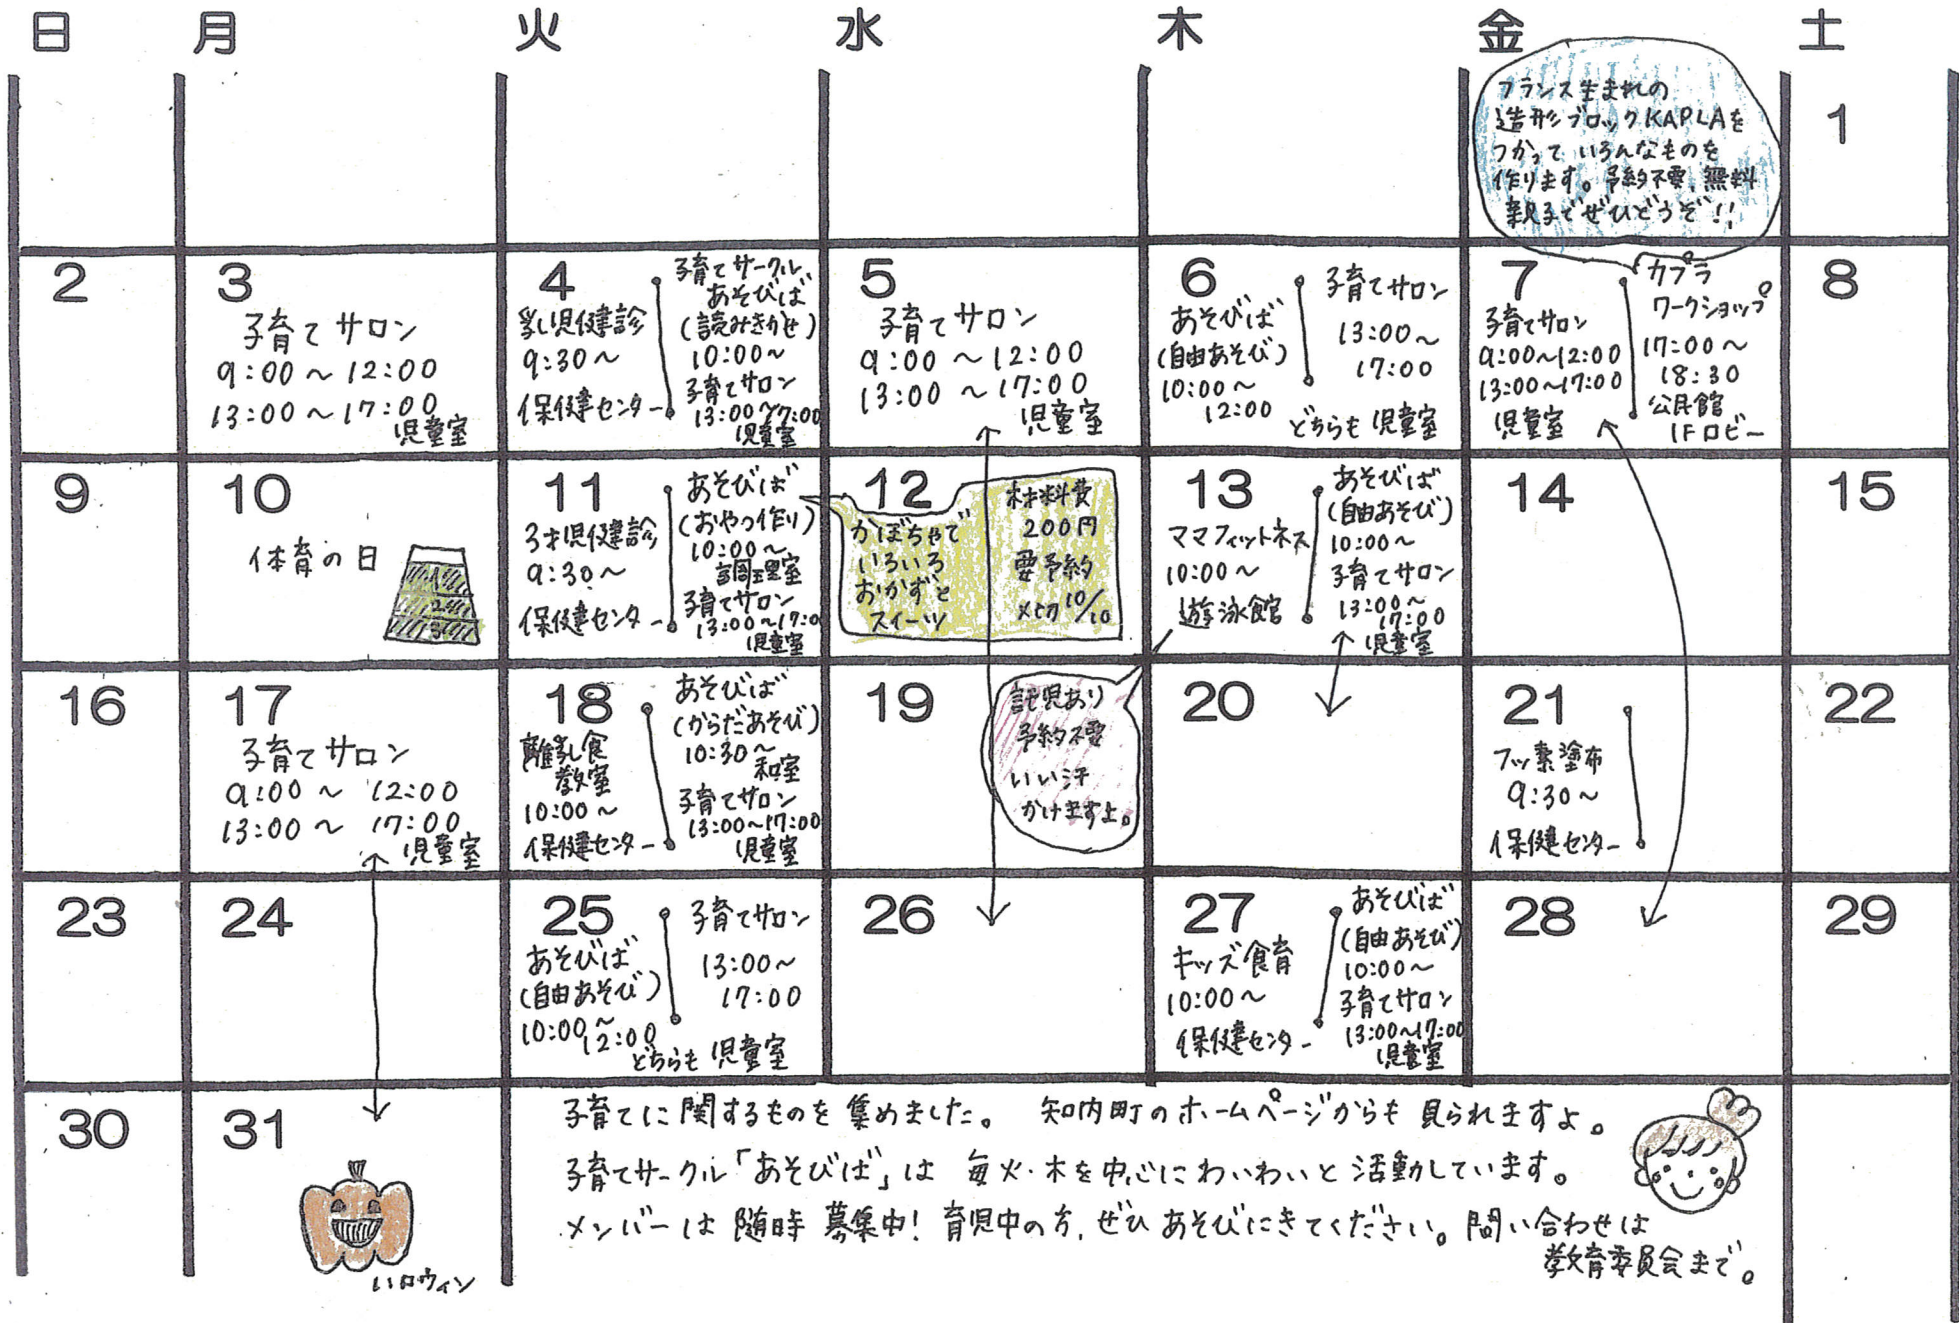 日 月 火 水 木 金 土
フランス生まれの
造形ブロックKAPLAを
つかっていろんなものを
作ります。予約不要、無料
親子でぜひどうぞ!!
1
2
3
子育てサロン
9:00～12:00
13:00～17:00
児童室
4
乳児健診
9:30～
保健センター
子育てサークル
あそびば
(読みきかせ)
10:00～
子育てサロン
13:00～17:00
児童室
5
子育てサロン
9:00～12:00
13:00～17:00
児童室
6
あそびば
(自由あそび)
10:00～
12:00
子育てサロン
13:00～
17:00
どちらも児童室
7
子育てサロン
9:00～12:00
13:00～17:00
児童室
カプラ
ワークショップ
17:00～
18:30
公民館
1Fロビー
8
9
10
体育の日
1
2
3
11
3才児健診
9:30～
保健センター
あそびば
(おやつ作り)
10:00～
調理室
子育てサロン
13:00～17:00
児童室
12
かぼちゃで
いろいろ
おかずと
スイーツ
材料費
200円
要予約
〆切10/10
13
ママフィットネス
10:00～
遊泳館
あそびば
(自由あそび)
10:00～
子育てサロン
13:00～
17:00
児童室
14
15
16
17
子育てサロン
9:00～12:00
13:00～17:00
児童室
18
離乳食
教室
10:00～
保健センター
あそびば
(からだあそび)
10:30～
和室
子育てサロン
13:00～17:00
児童室
19
託児あり
予約不要
いい汗
かけますよ。
20
21
フッ素塗布
9:30～
保健センター
22
23
24
25
あそびば
(自由あそび)
10:00～
12:00
子育てサロン
13:00～
17:00
どちらも児童室
26
27
キッズ食育
10:00～
保健センター
あそびば
(自由あそび)
10:00～
子育てサロン
13:00～17:00
児童室
28
29
30
31
ハロウィン
子育てに関するものを集めました。 知内町のホームページからも見られますよ。
子育てサークル「あそびば」は毎火・木を中心にわいわいと活動しています。
メンバーは随時募集中!育児中の方、ぜひあそびにきてください。問い合わせは
教育委員会まで。